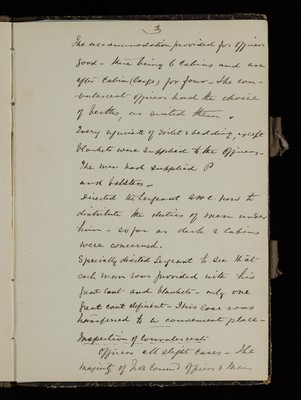 3
The accommodation provided for Officers
good - there being 6 Cabins and an
after Cabin (large) for four - The con-
valescent officers had the choice
of berths, as suited them.
Every requisite of toilet & bedding, except
blankets were supplied to the officers -
The men had supplied P
and bolsters -
Directed the Sergeant how to
distribute the duties of men under
him - so far as deck & cabins
were concerned.
Specially directed Sergeant to see that
each man was provided with his
great coat and blankets - only one
great coat deficient - This case was
transferred to a convenient place -
Inspection of Convalescents
Officers all slight cases - The
majority of officers & men